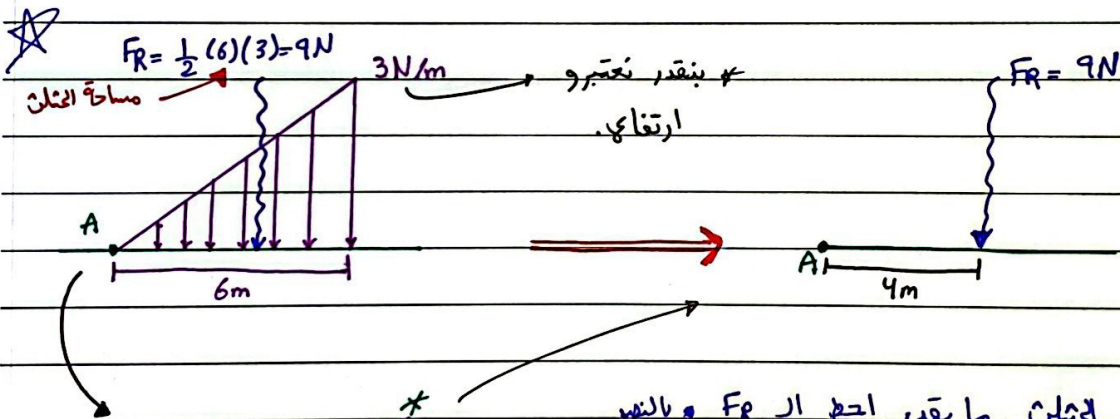 FR = 1/2 (6)(3) = 9N
مساحة المثلث
3 N/m
* بنقدر نعتبرو
ارتفاع.
FR = 9N
A
6m
A
4m
*
المثلث ما بقدر احط ال FR بالنص